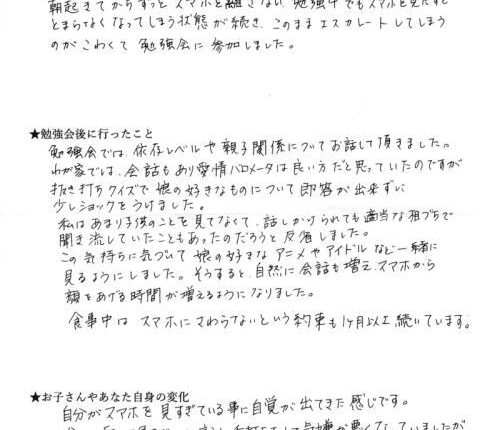 朝起きてからずっとスマホを離さない、勉強中でもスマホを見だすと
とまらなくなってしまう状態が続き、このままエスカレートしてしまう
のがこわくて勉強会に参加しました。
★勉強会後に行ったこと
勉強会では、依存レベルや親子関係についてお話して頂きました。
わが家では、会話もあり愛情バロメータは良い方だと思っていたのですが
抜き打ちクイズで娘の好きなものについて即答が出来ずに
少しショックをうけました。
私はあまり子供のことを見てなくて、話しかけられても適当な相づちで
聞き流していたこともあったのだろうと反省しました。
この気持ちに気づいて娘の好きなアニメやアイドルなど一緒に
見るようにしました。そうすると、自然に会話も増え、スマホから
顔をあげる時間が増えるようになりました。
食事中はスマホにさわらないという約束も1ヶ月以上続いています。
★お子さんやあなた自身の変化
自分がスマホを見すぎている事に自覚が出てきた感じです。